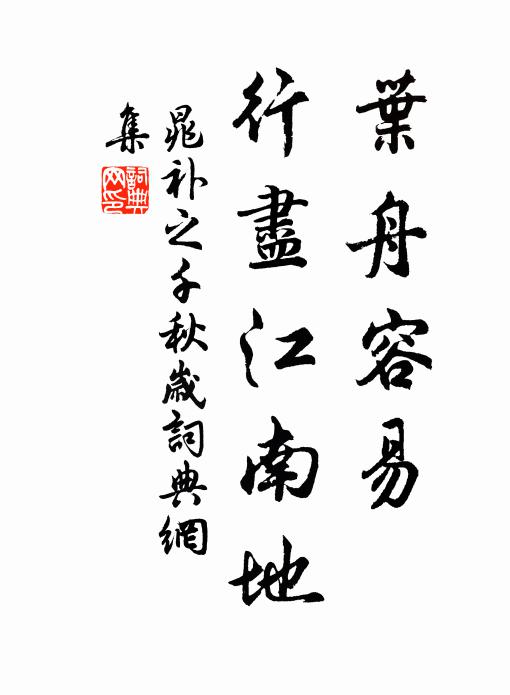 葉舟容易
行盡江南地
晁補之千秋歲詞典網
集
詞典
网印